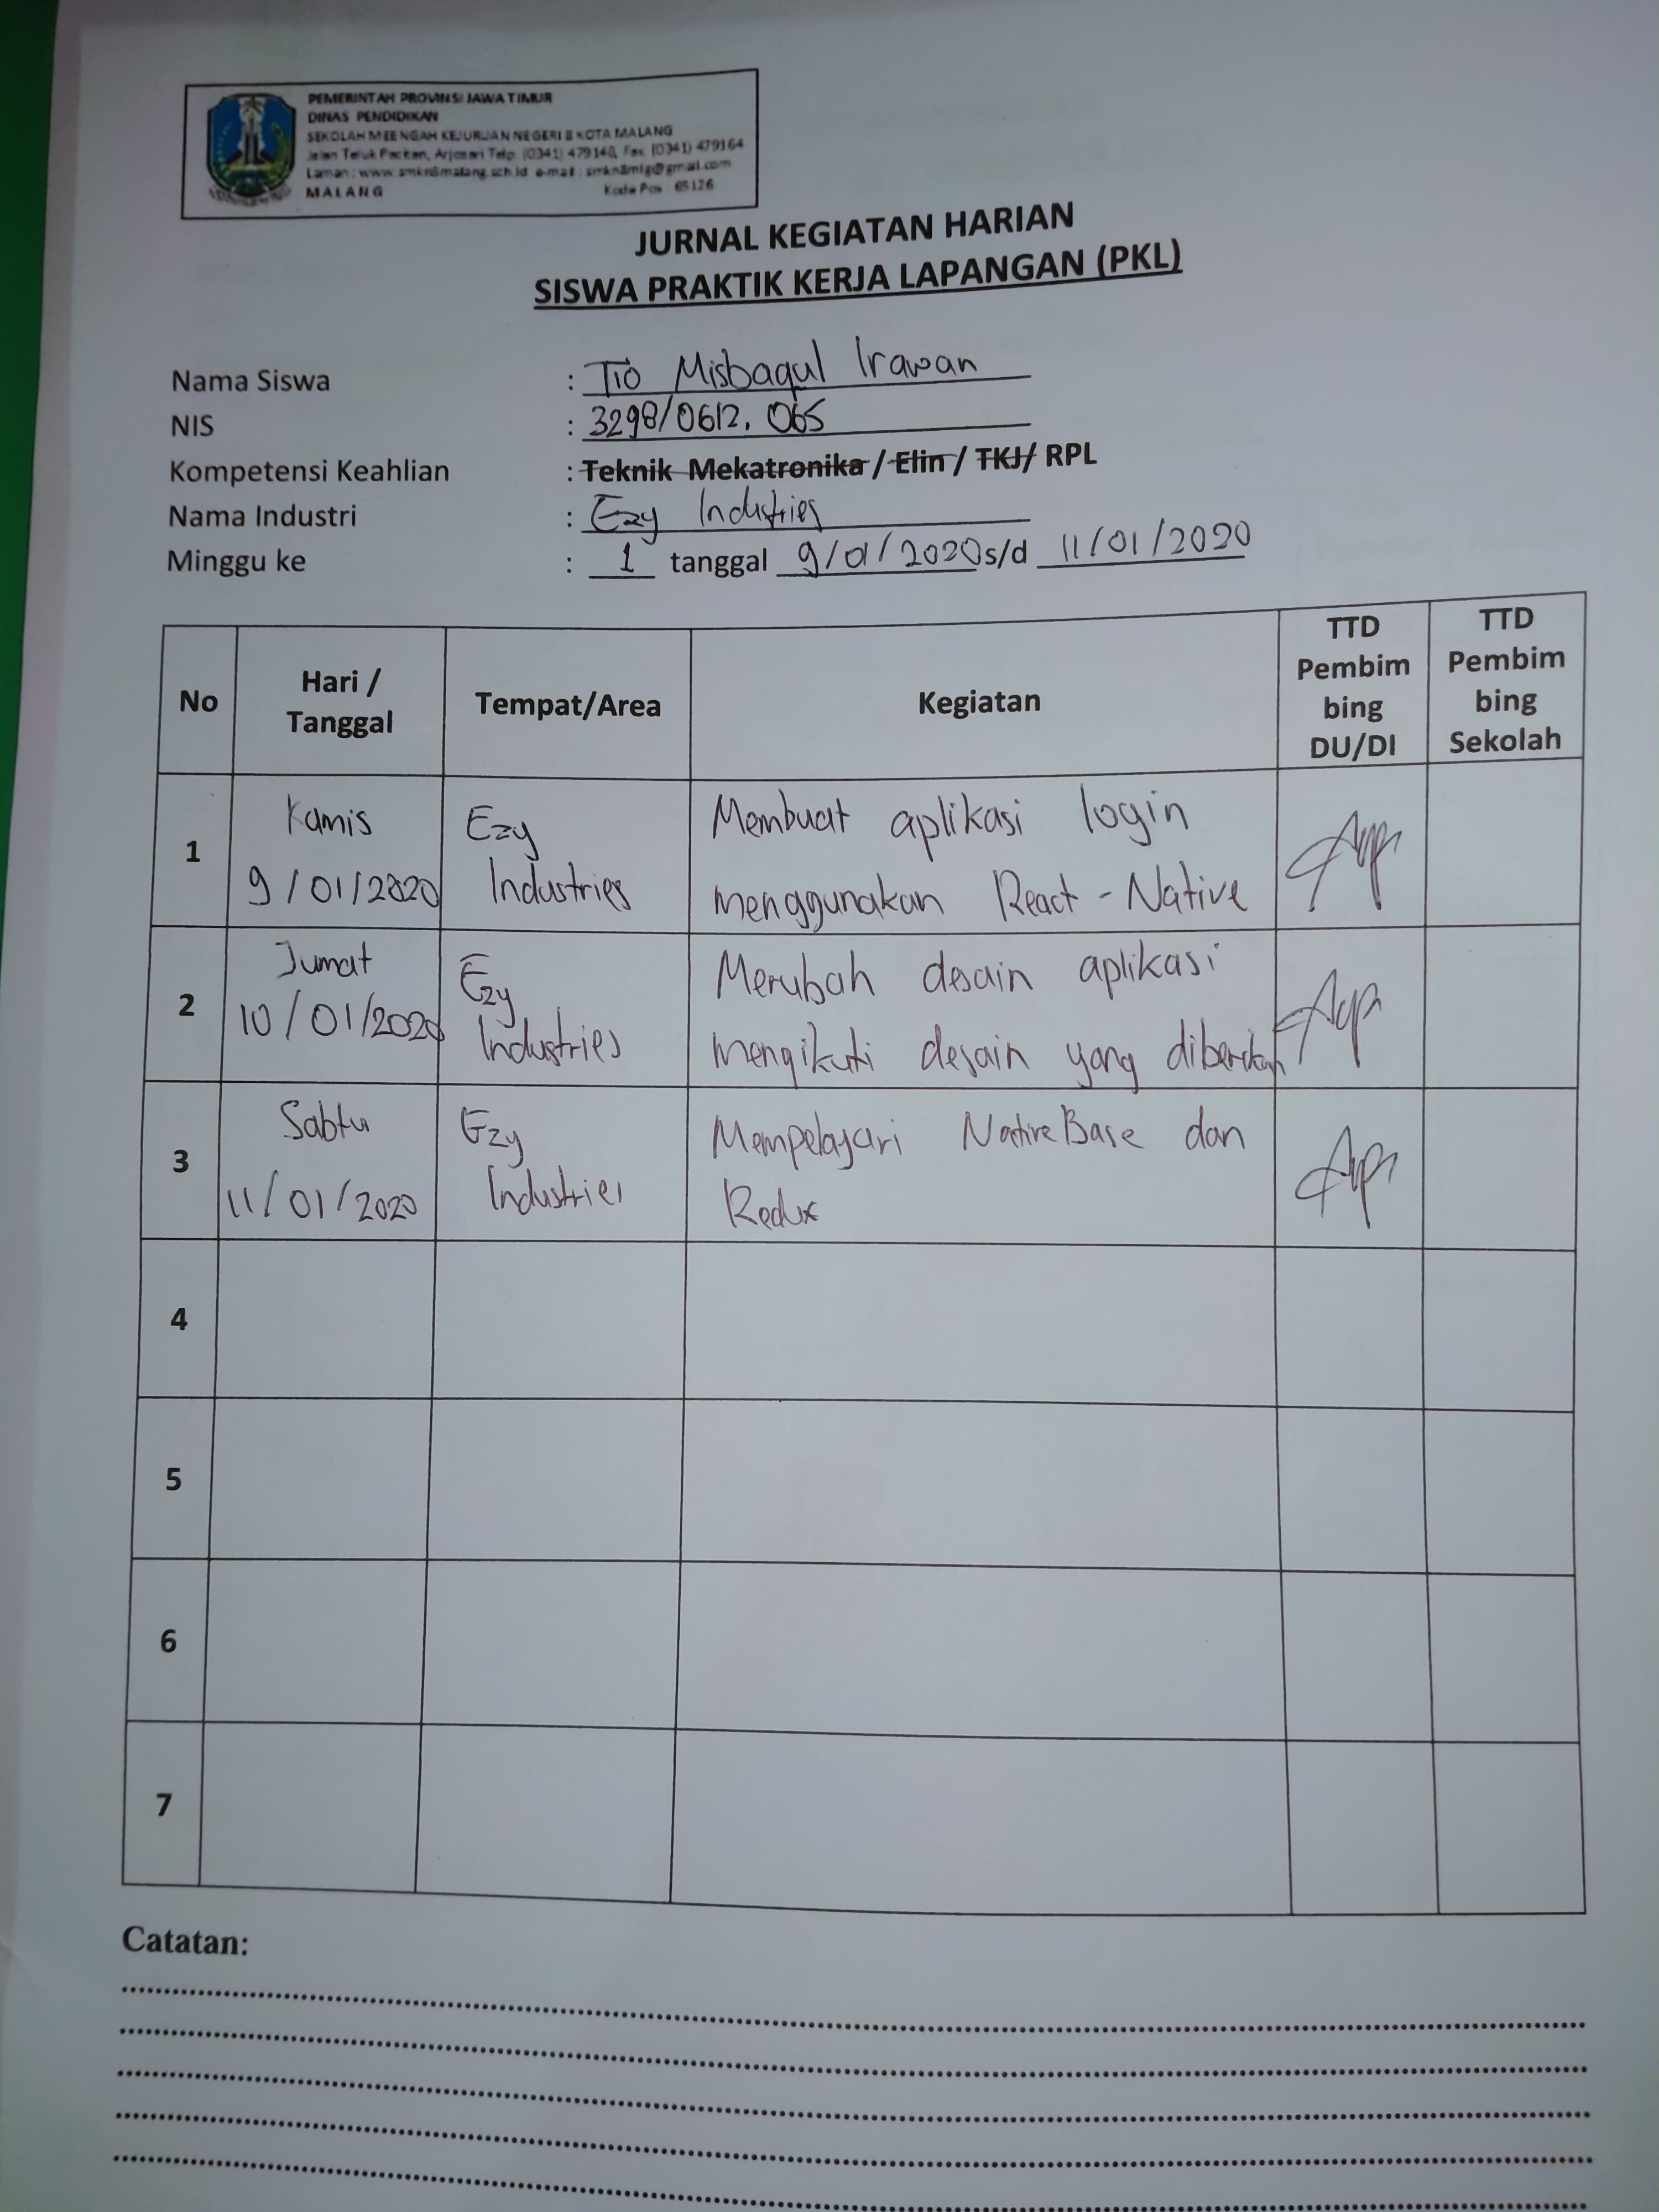 PEMERINTAH PROVINSI JAWA TIMUR
DINAS PENDIDIKAN
SEKOLAH MEENGAH KEJURUAN NEGERI 8 KOTA MALANG
Jalan Teluk Pacitan, Arjosari Telp. (0341) 479148, Fax. (0341) 479164
Laman : www.smkn8malang.sch.id e-mail : smkn8mlg@gmail.com
MALANG Kode Pos : 65126
JURNAL KEGIATAN HARIAN
SISWA PRAKTIK KERJA LAPANGAN (PKL)
Nama Siswa : Tio Misbaqul Irawan
NIS : 3298/0612.065
Kompetensi Keahlian : Teknik Mekatronika / Elin / TKJ/ RPL
Nama Industri : Ezy Industries
Minggu ke : 1 tanggal 9/01/2020 s/d 11/01/2020
No
Hari /
Tanggal
Tempat/Area
Kegiatan
TTD
Pembim
bing
DU/DI
TTD
Pembim
bing
Sekolah
1
Kamis
9/01/2020
Ezy
Industries
Membuat aplikasi login
menggunakan React - Native
2
Jumat
10/01/2020
Ezy
Industries
Merubah desain aplikasi
mengikuti desain yang diberikan
3
Sabtu
11/01/2020
Ezy
Industries
Mempelajari NativeBase dan
Redux
4
5
6
7
Catatan: